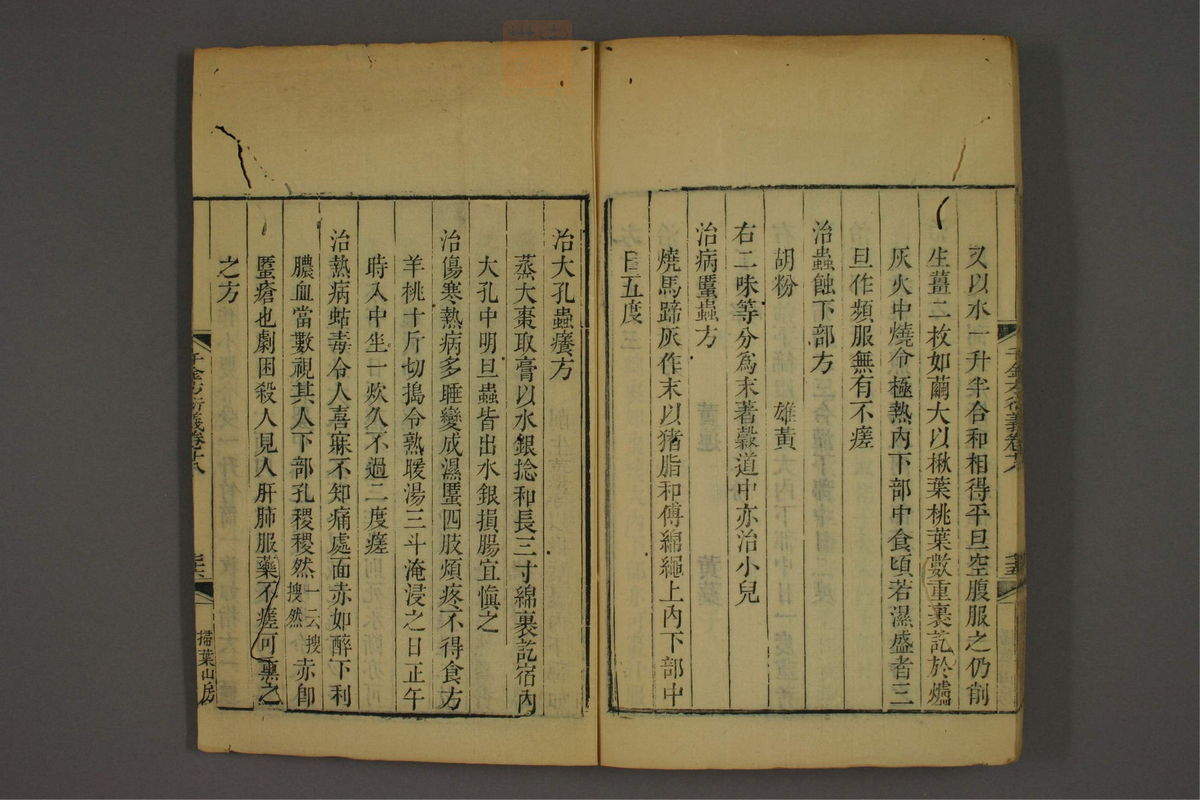 又以水一升半合和相得平旦空腹服之仍削
生薑二枚如繭大以楸葉桃葉數重裹訖於爐
灰火中燒令極熱內下部中食頃若濕盛者三
旦作頻服無有不瘥
治蟲蝕下部方
胡粉 雄黃
右二味等分為末著穀道中亦治小兒
治病䘌蟲方
燒馬蹄灰作末以猪脂和傅綿繩上內下部中
日五度
千金方衍義卷十八
治大孔蟲癢方
蒸大棗取膏以水銀捻和長三寸綿裹訖宿內
大孔中明旦蟲皆出水銀損腸宜慎之
治傷寒熱病多睡變成濕䘌四肢煩疼不得食方
羊桃十斤切搗令熟暖湯三斗淹浸之日正午
時入中坐一炊久不過二度瘥
治熱病蛄毒令人喜寐不知痛處面赤如醉下利
膿血當數視其人下部孔稷稷然一云搜搜然赤卽
䘌瘡也劇困殺人見人肝肺服藥不瘥可熏之
之方
千金方衍義卷十八
掃葉山房